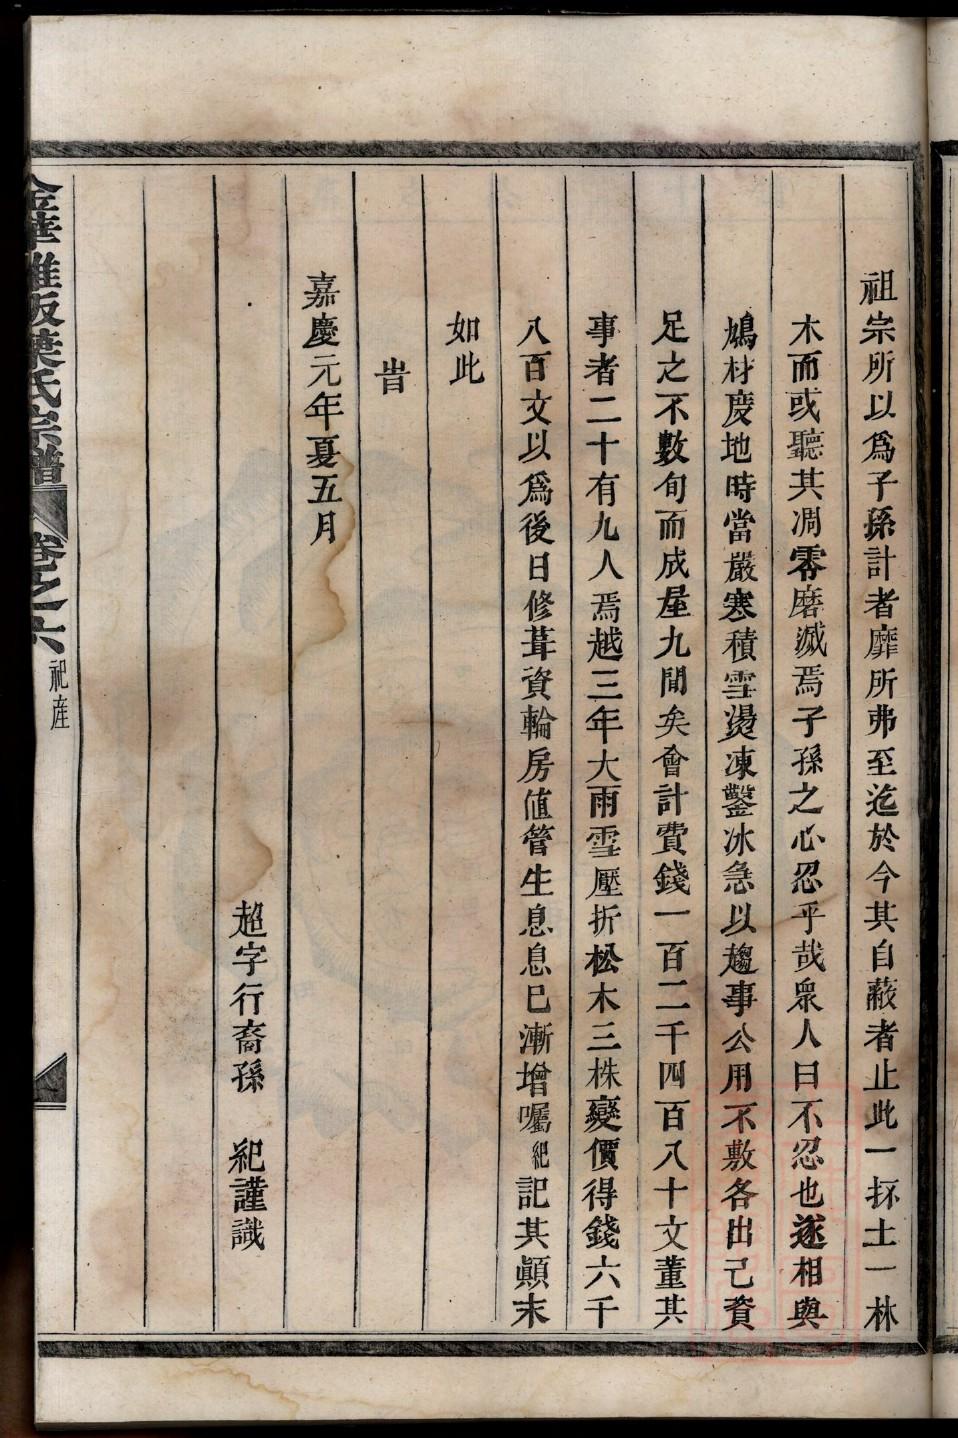 祖宗所以爲子孫計者靡所弗至迄於今其自蔽者止此一抔土一林
木而或聽其凋零磨滅焉子孫之心忍乎哉衆人曰不忍也遂相與
鳩材庋地時當嚴寒積雪燙凍鑿冰急以趨事公用不敷各出己資
足之不數旬而成屋九間矣會計費錢一百二千四百八十文董其
事者二十有九人焉越三年大雨雪壓折松木三株變價得錢六千
八百文以爲後日修葺資輪房値管生息息已漸增囑紀記其顚末
如此
旹
嘉慶元年夏五月
超字行裔孫 紀謹識
金華雅畈葉氏宗譜 卷之六 祀産